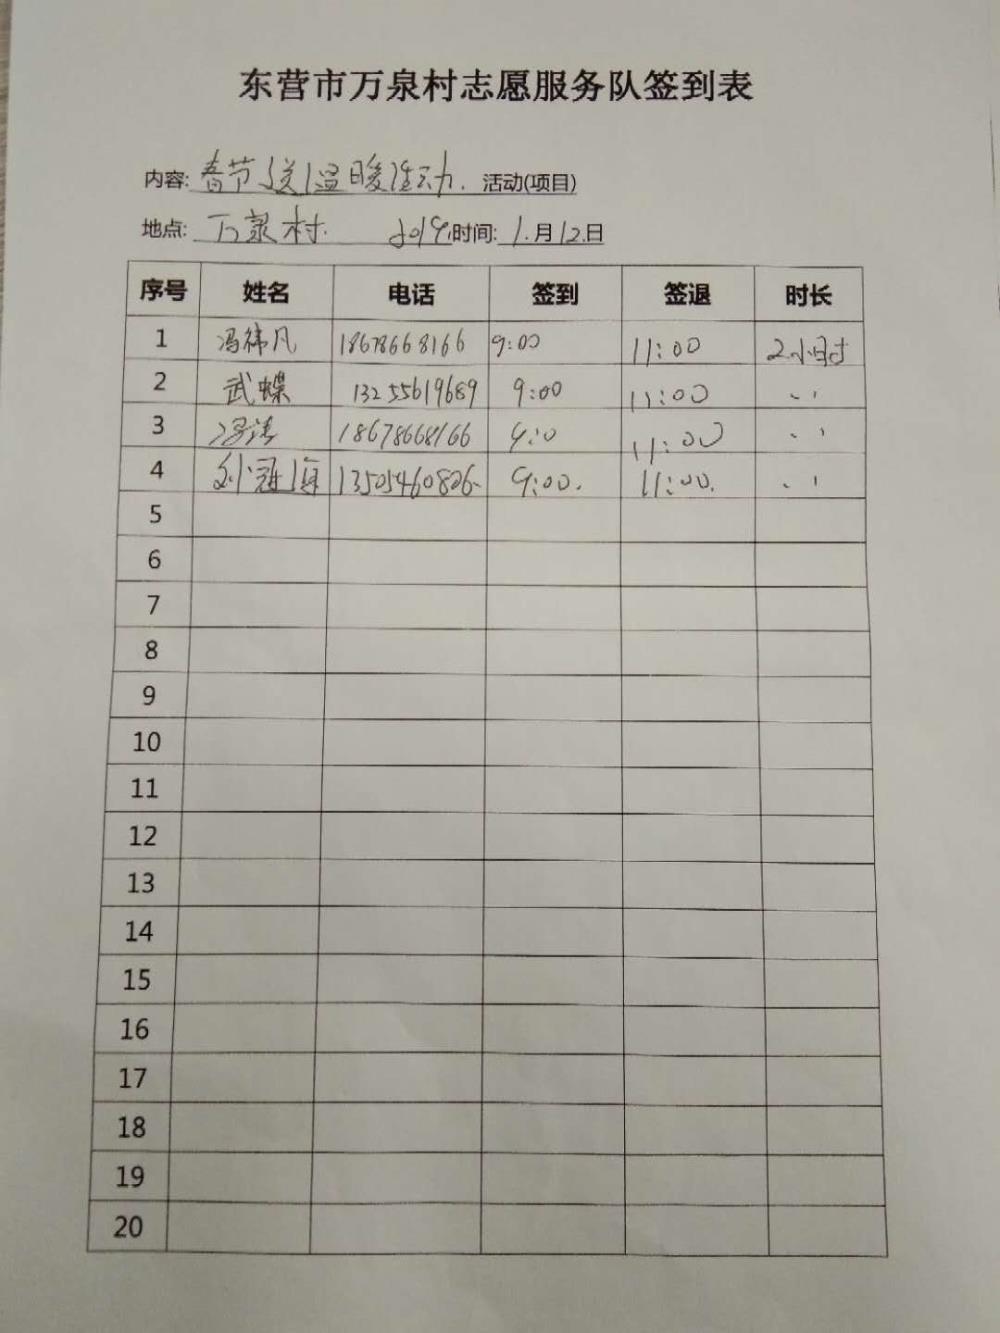 东营市万泉村志愿服务队签到表
内容: 春节送温暖活动. 活动(项目)
地点: 万泉村. 2019.时间: 1.月12.日
序号 姓名 电话 签到 签退 时长
1 冯祎凡 18678668166 9:00 11:00 2小时
2 武蝶 13255619689 9:00 11:00 、、
3 冯涛 18678668166 9:0 11:00 、、
4 刘冠海 13505460806 9:00. 11:00. 、、
5
6
7
8
9
10
11
12
13
14
15
16
17
18
19
20